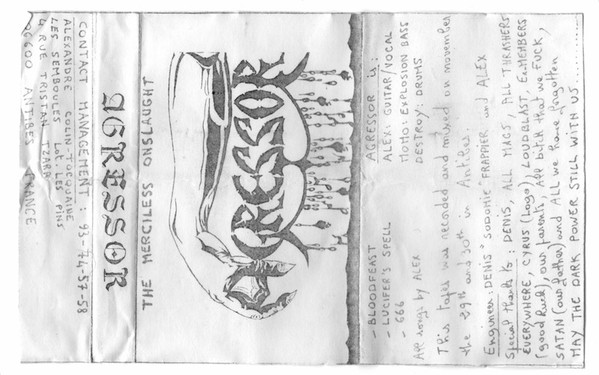 AGRESSOR
THE MERCILESS ONSLAUGHT
AGRESSOR
CONTACT MANAGEMENT : 93-74-57-58
ALEXANDRE COLIN-TOCQUAINE
LES SEMBOLES Lot. LES PINS
4 RUE TRISTAN TZARA
06600 ANTIBES FRANCE
- BLOODFEAST
- LUCIFER'S SPELL
- 666
All songs by ALEX
AGRESSOR is :
ALEX: GUITAR/VOCAL
MOMO: EXPLOSION BASS
DESTROY: DRUMS
This tape was recorded and mixed on november
the 29th and 30th in Antibes.
Engineer: DENIS "SODOMIC" FRAPPIER and ALEX
Special thanks to : DENIS, ALL MAGS, ALL THRASHERS
EVERYWHERE, CYRUS (Logo), LOUDBLAST, Ex-MEMBERS
(good luck), our parents, all bitch that we FUCK,
SATAN (our father) and ALL we have forgotten
MAY THE DARK POWER STILL WITH US......